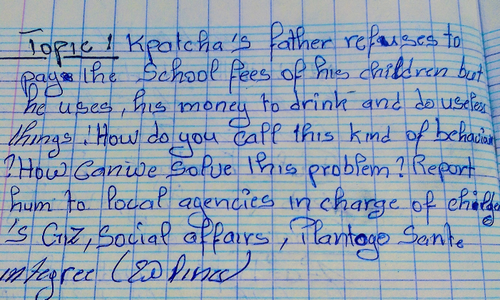 Topic 1 Kpatcha's father refuses to
pay the School fees of his children but
he uses, his money to drink and do useless
things! How do you call this kind of behaviour
? How can we solve this problem? Report
him to local agencies in charge of child
's Giz, Social affairs, Plantogo Sante
integree (